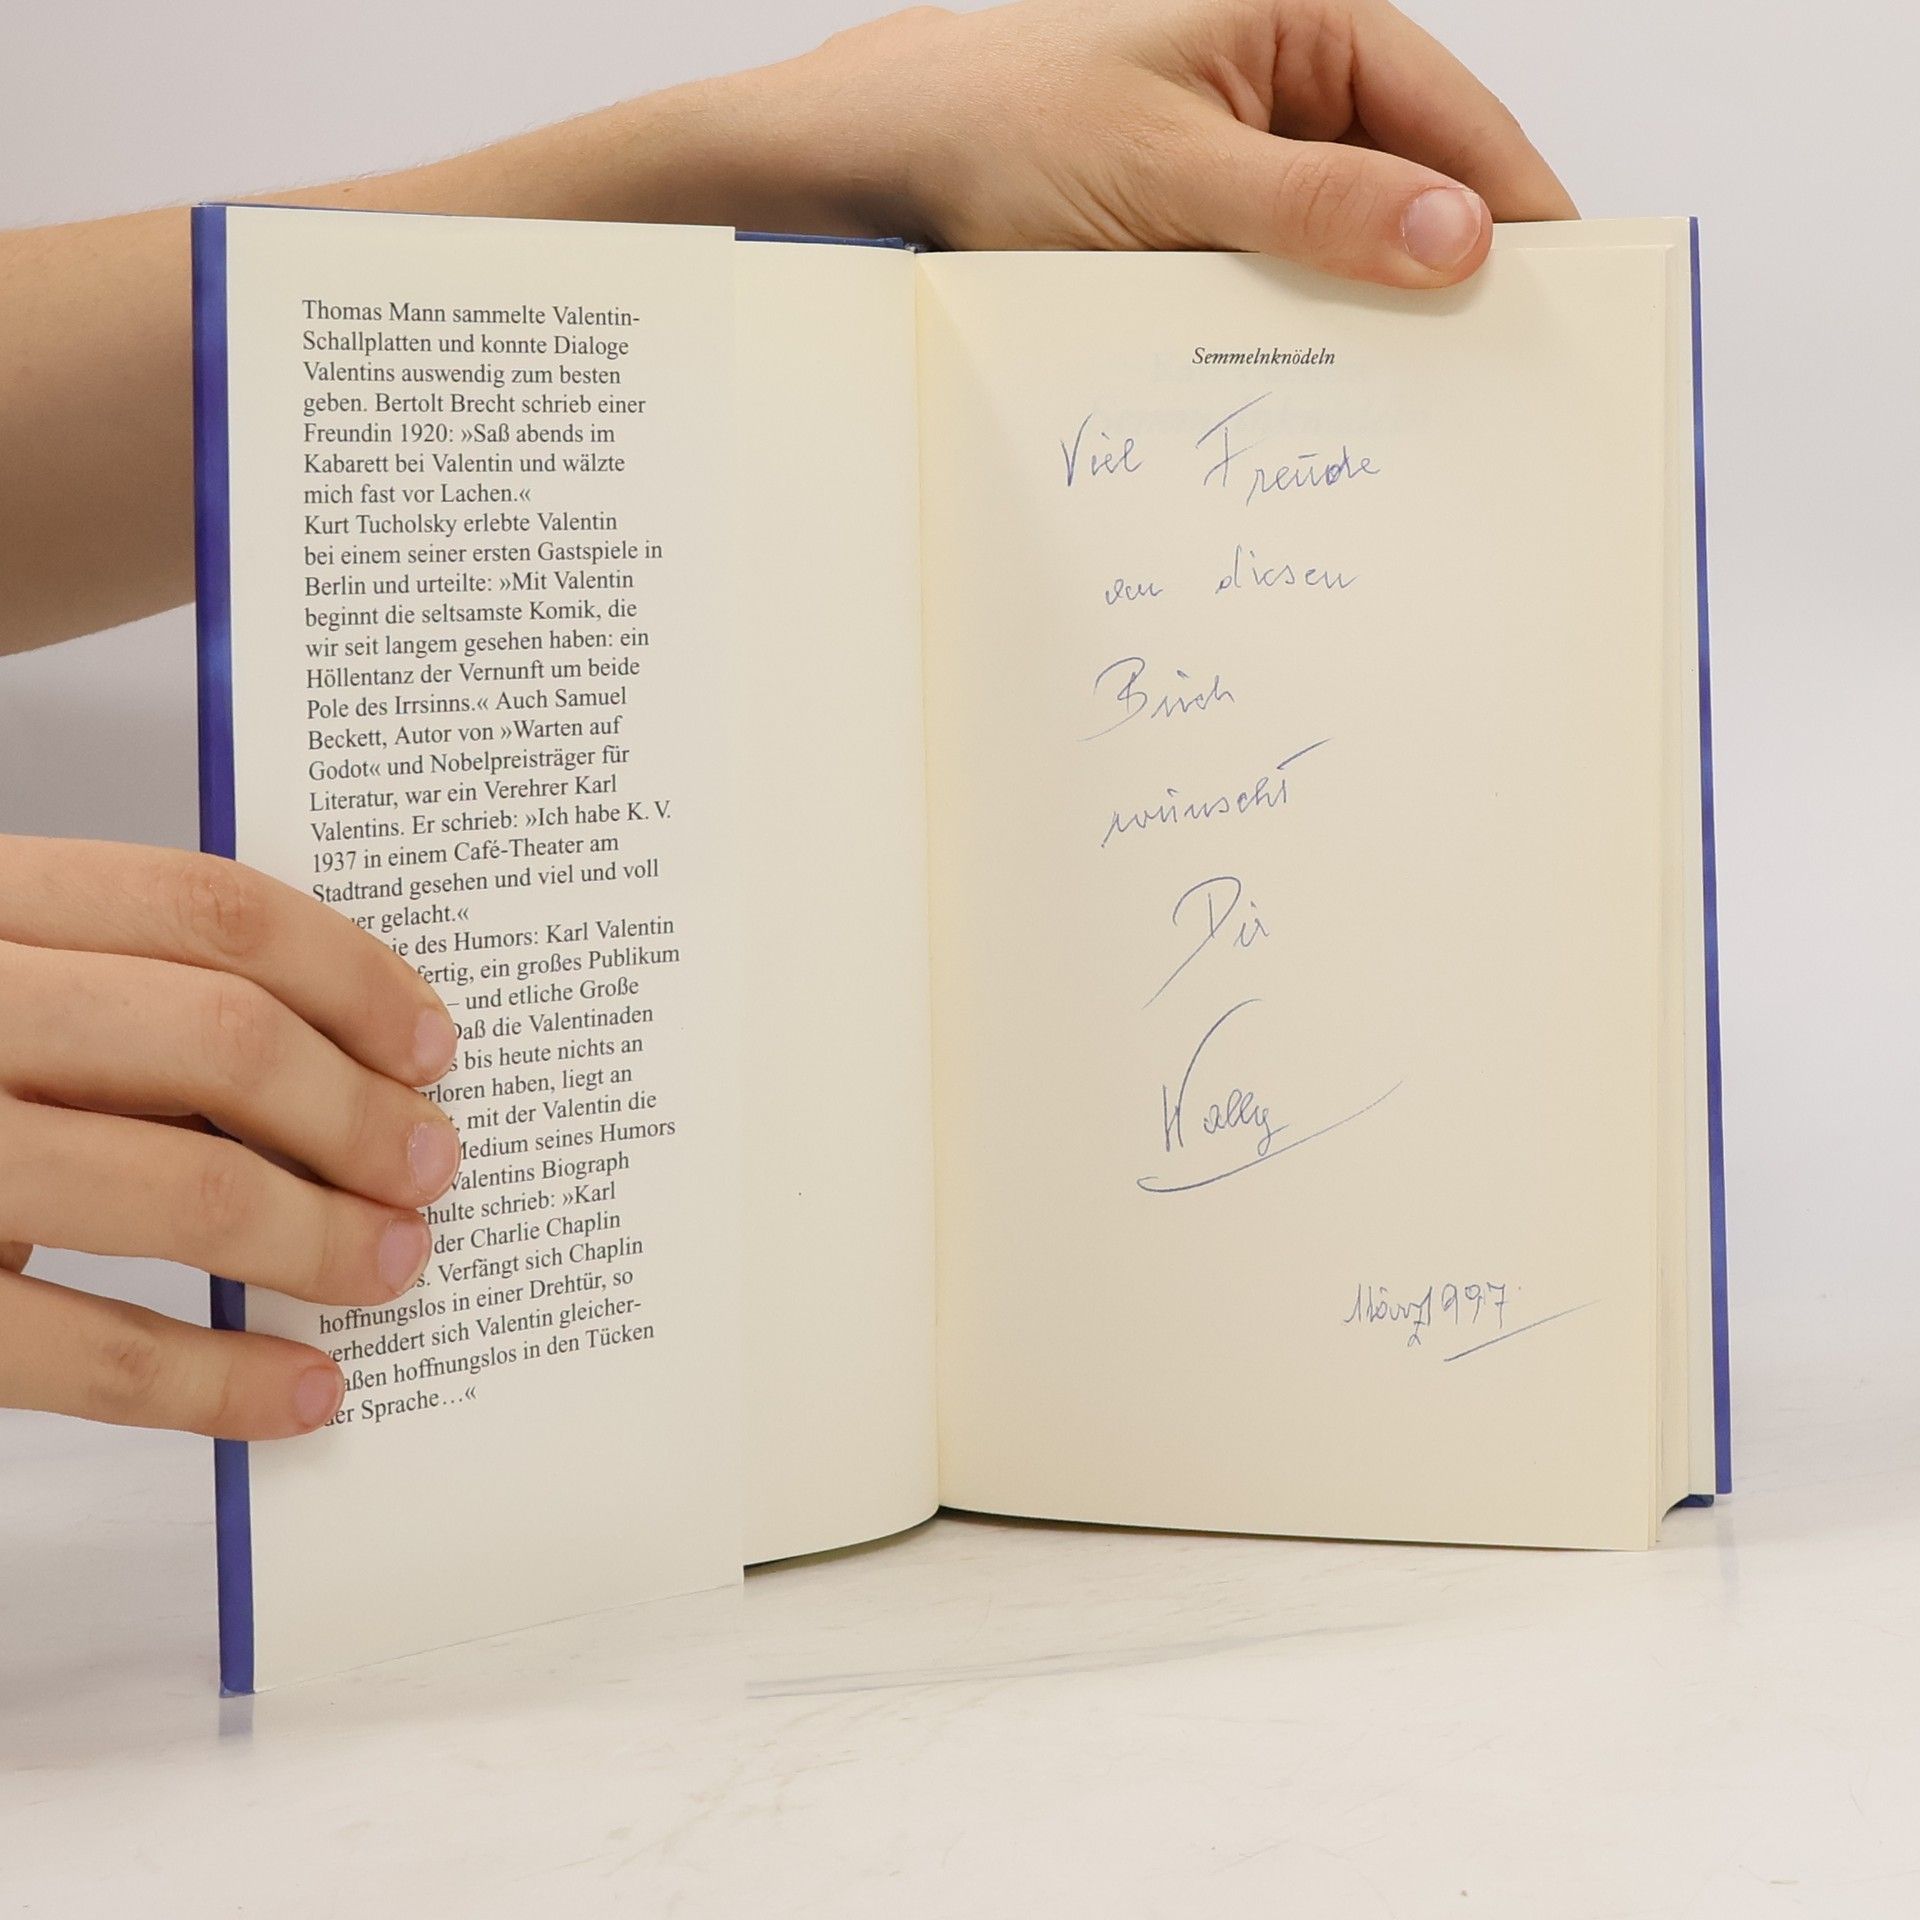 Thomas Mann sammelte Valentin-
Schallplatten und konnte Dialoge
Valentins auswendig zum besten
geben. Bertolt Brecht schrieb einer
Freundin 1920: »Saß abends im
Kabarett bei Valentin und wälzte
mich fast vor Lachen.«
Kurt Tucholsky erlebte Valentin
bei einem seiner ersten Gastspiele in
Berlin und urteilte: »Mit Valentin
beginnt die seltsamste Komik, die
wir seit langem gesehen haben: ein
Höllentanz der Vernunft um beide
Pole des Irrsinns.« Auch Samuel
Beckett, Autor von »Warten auf
Godot« und Nobelpreisträger für
Literatur, war ein Verehrer Karl
Valentins. Er schrieb: »Ich habe K. V.
1937 in einem Café-Theater am
Stadtrand gesehen und viel und voll
gelacht.«
des Humors: Karl Valentin
ein großes Publikum
– und etliche Große
Daß die Valentinaden
bis heute nichts an
haben, liegt an
mit der Valentin die
Medium seines Humors
Valentins Biograph
schrieb: »Karl
der Charlie Chaplin
Verfängt sich Chaplin
hoffnungslos in einer Drehtür, so
verheddert sich Valentin gleicher-
hoffnungslos in den Tücken
der Sprache…«
Semmelnknödeln
Viel Freude
an diesen
Buch
wünscht
Dir
Wally
März 1997